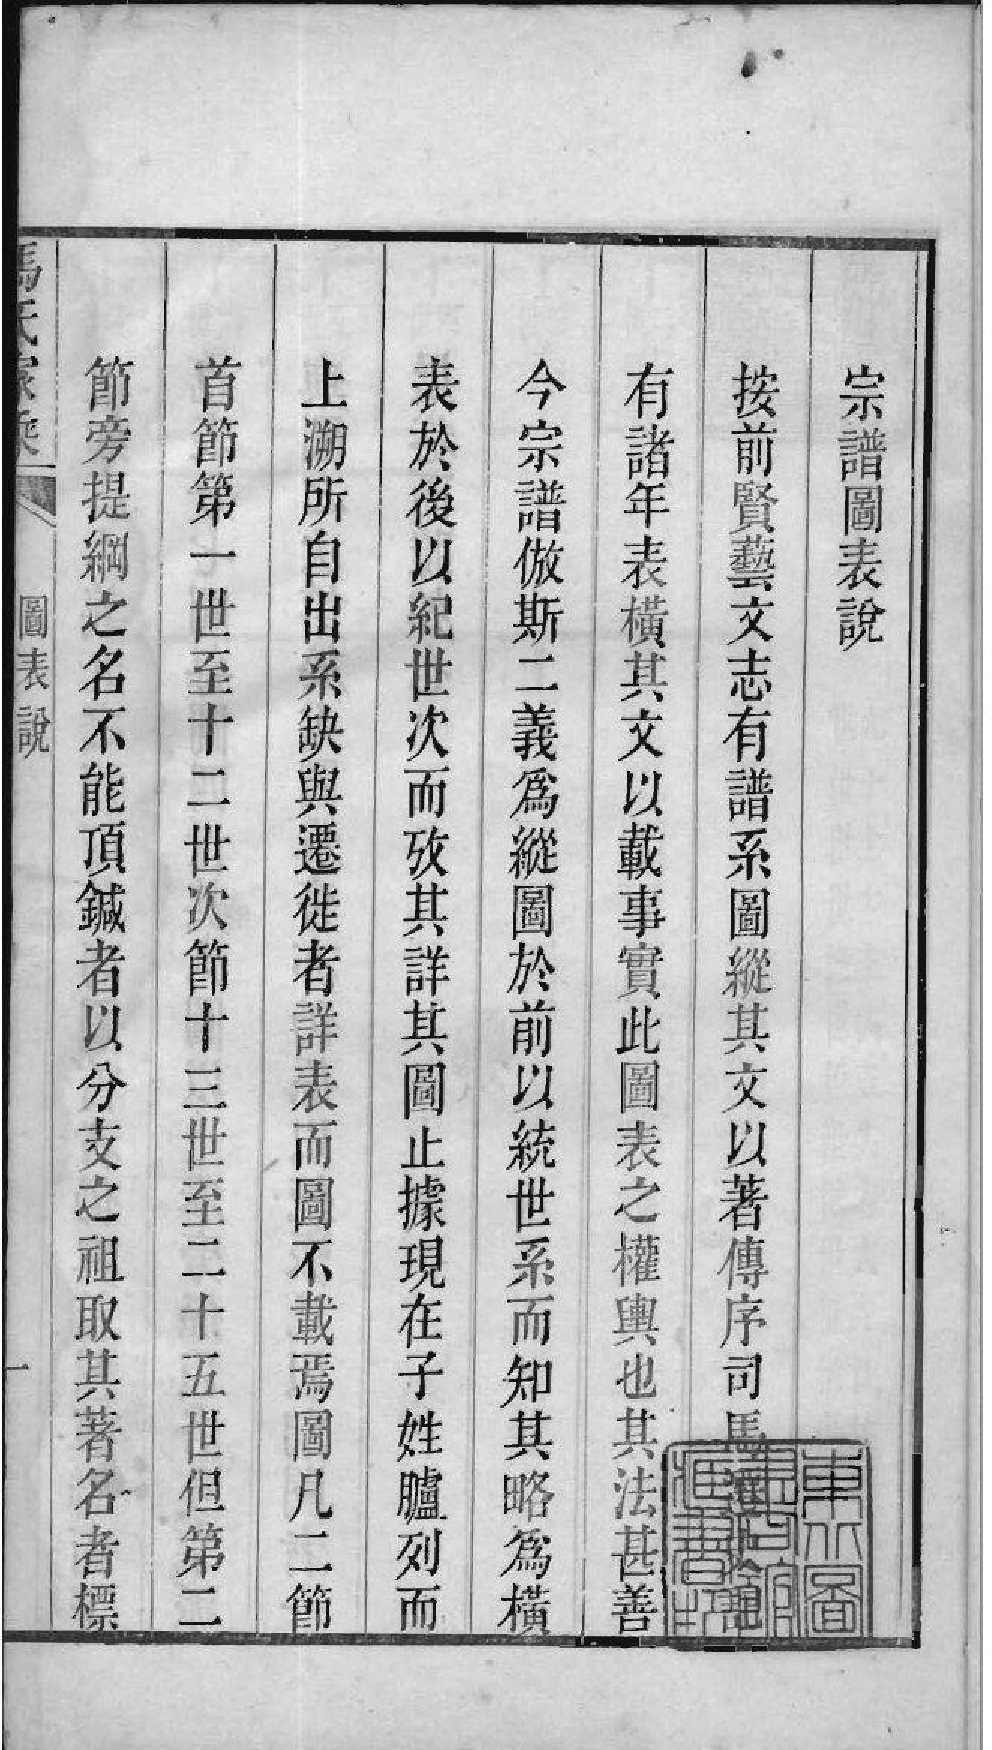 宗譜圖表說
按前賢藝文志有譜系圖縱其文以著傳序司馬
有諸年表橫其文以載事實此圖表之權輿也其法甚善
今宗譜倣斯二義爲縱圖於前以統世系而知其略爲橫
表於後以紀世次而攷其詳其圖止據現在子姓臚列而
上溯所自出系缺與遷徙者詳表而圖不載焉圖凡二節
首節第一世至十二世次節十三世至二十五世但第二
節旁提綱之名不能頂鍼者以分支之祖取其著名者標
馬氏家乘
圖表說
一